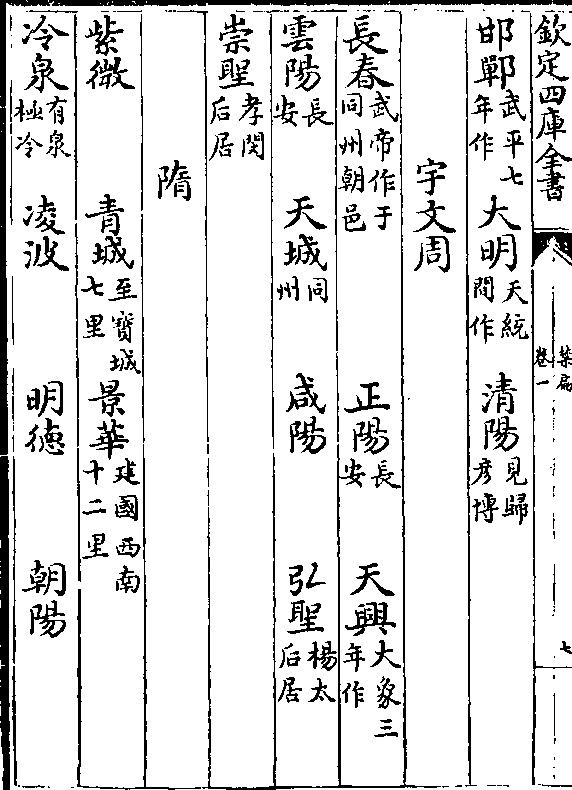 欽定四庫全書
禁扁
卷一
七
邯鄲武平七年作 大明天統間作 清陽見歸彦博
宇文周
長春武帝作于同州朝邑 正陽長安 天興大象三年作
雲陽長安 天城同州 咸陽 弘聖楊太后居
崇聖孝閔后居
隋
紫微 青城至寶城七里 景華建國西南十二里
冷泉有泉極冷 凌波 明德 朝陽